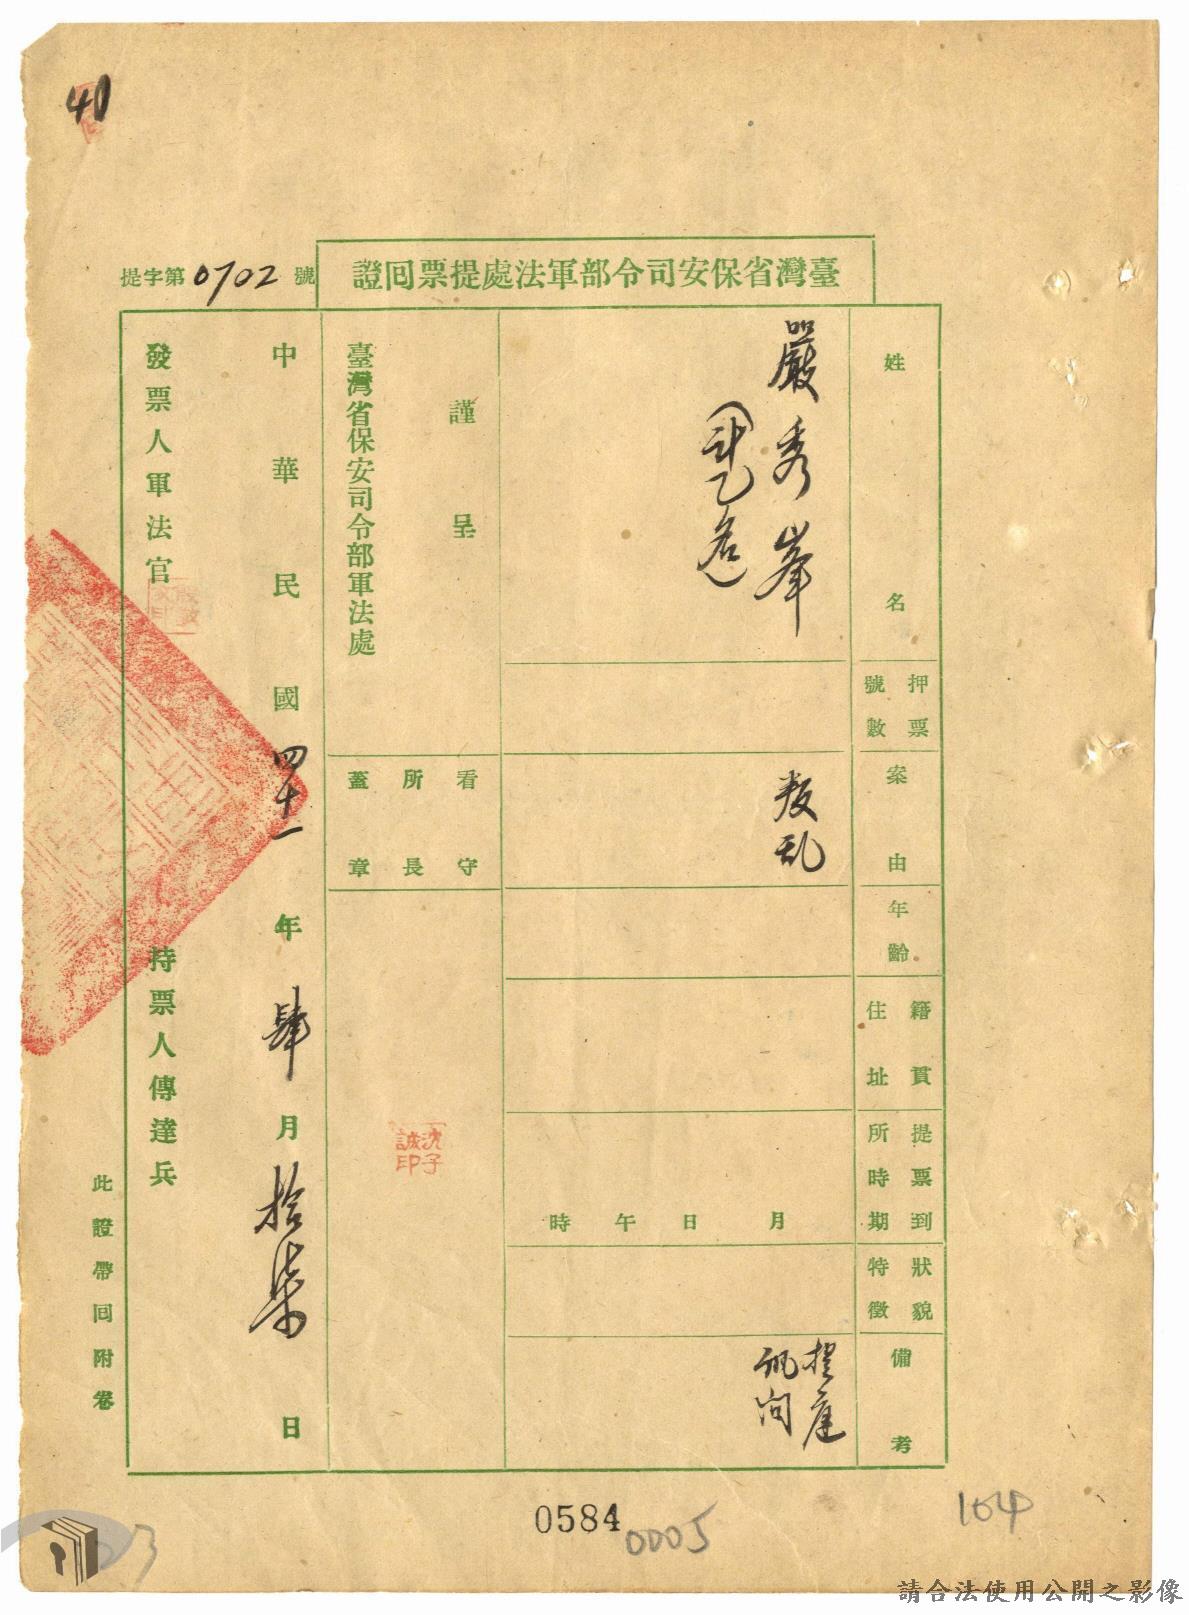 40
提字第0702號
臺灣省保安司令部軍法處提票回證
姓名
嚴秀峯
押票號數
案由
叛乱
年齡
籍貫住址
提票到所時期
月日午時
狀貌特徵
備考
提庭
訊問
謹呈
臺灣省保安司令部軍法處
看守所長蓋章
沈子誠印
中華民國四十一年肆月拾柒日
發票人軍法官
持票人傳達兵
此證帶回附卷
0584
0005
104
請合法使用公開之影像